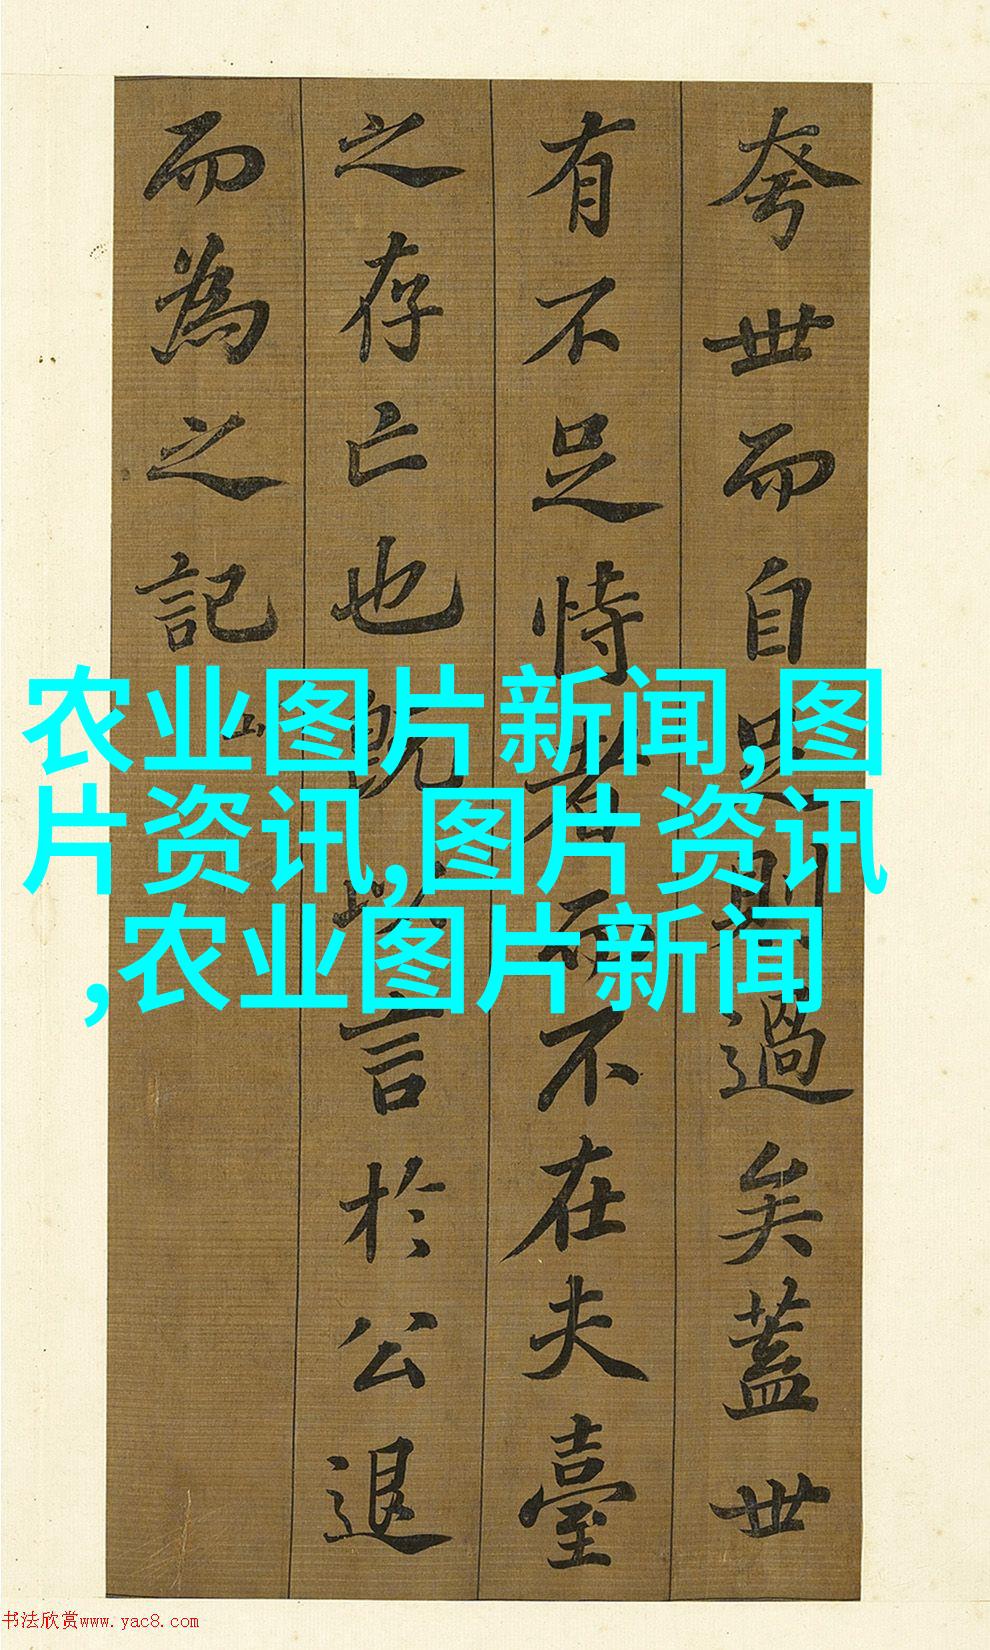 夸世而自足則過矣蓋世
有不足恃者而不在夫臺
之存亡也既以言於公退
而為之記
农业图片新闻,图
片资讯,图片资讯
,农业图片新闻
书法欣赏www.yac8.com